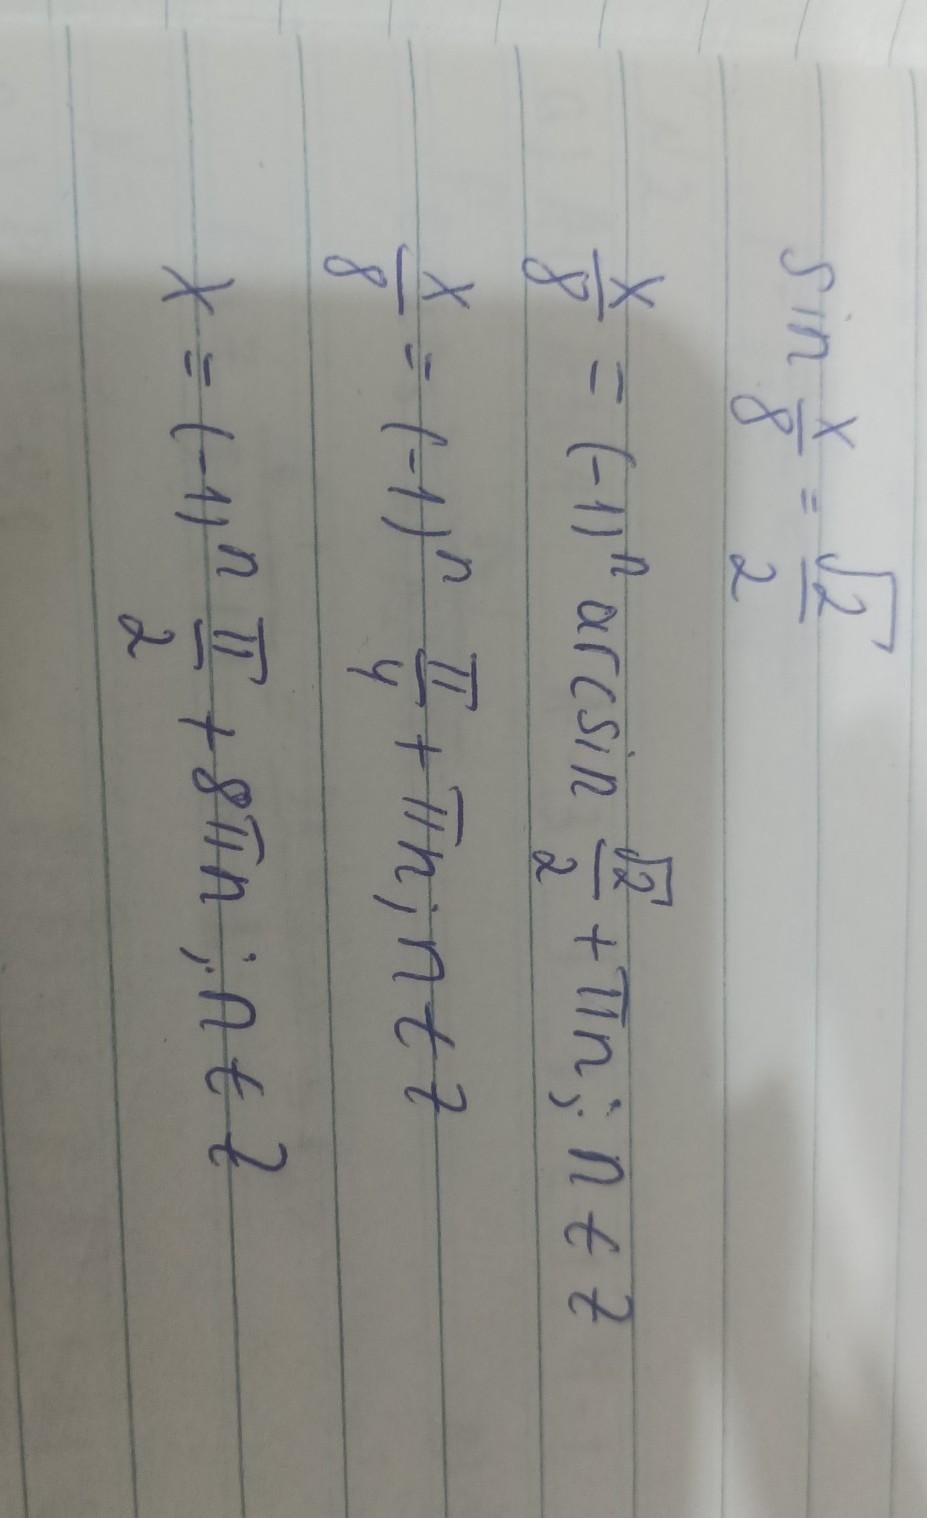 sin x/8 = √2/2
x/8 = (-1)ⁿ arcsin √2/2 + πn; n ∈ Z
x/8 = (-1)ⁿ π/4 + πn; n ∈ Z
x = (-1)ⁿ π/2 + 8πn; n ∈ Z